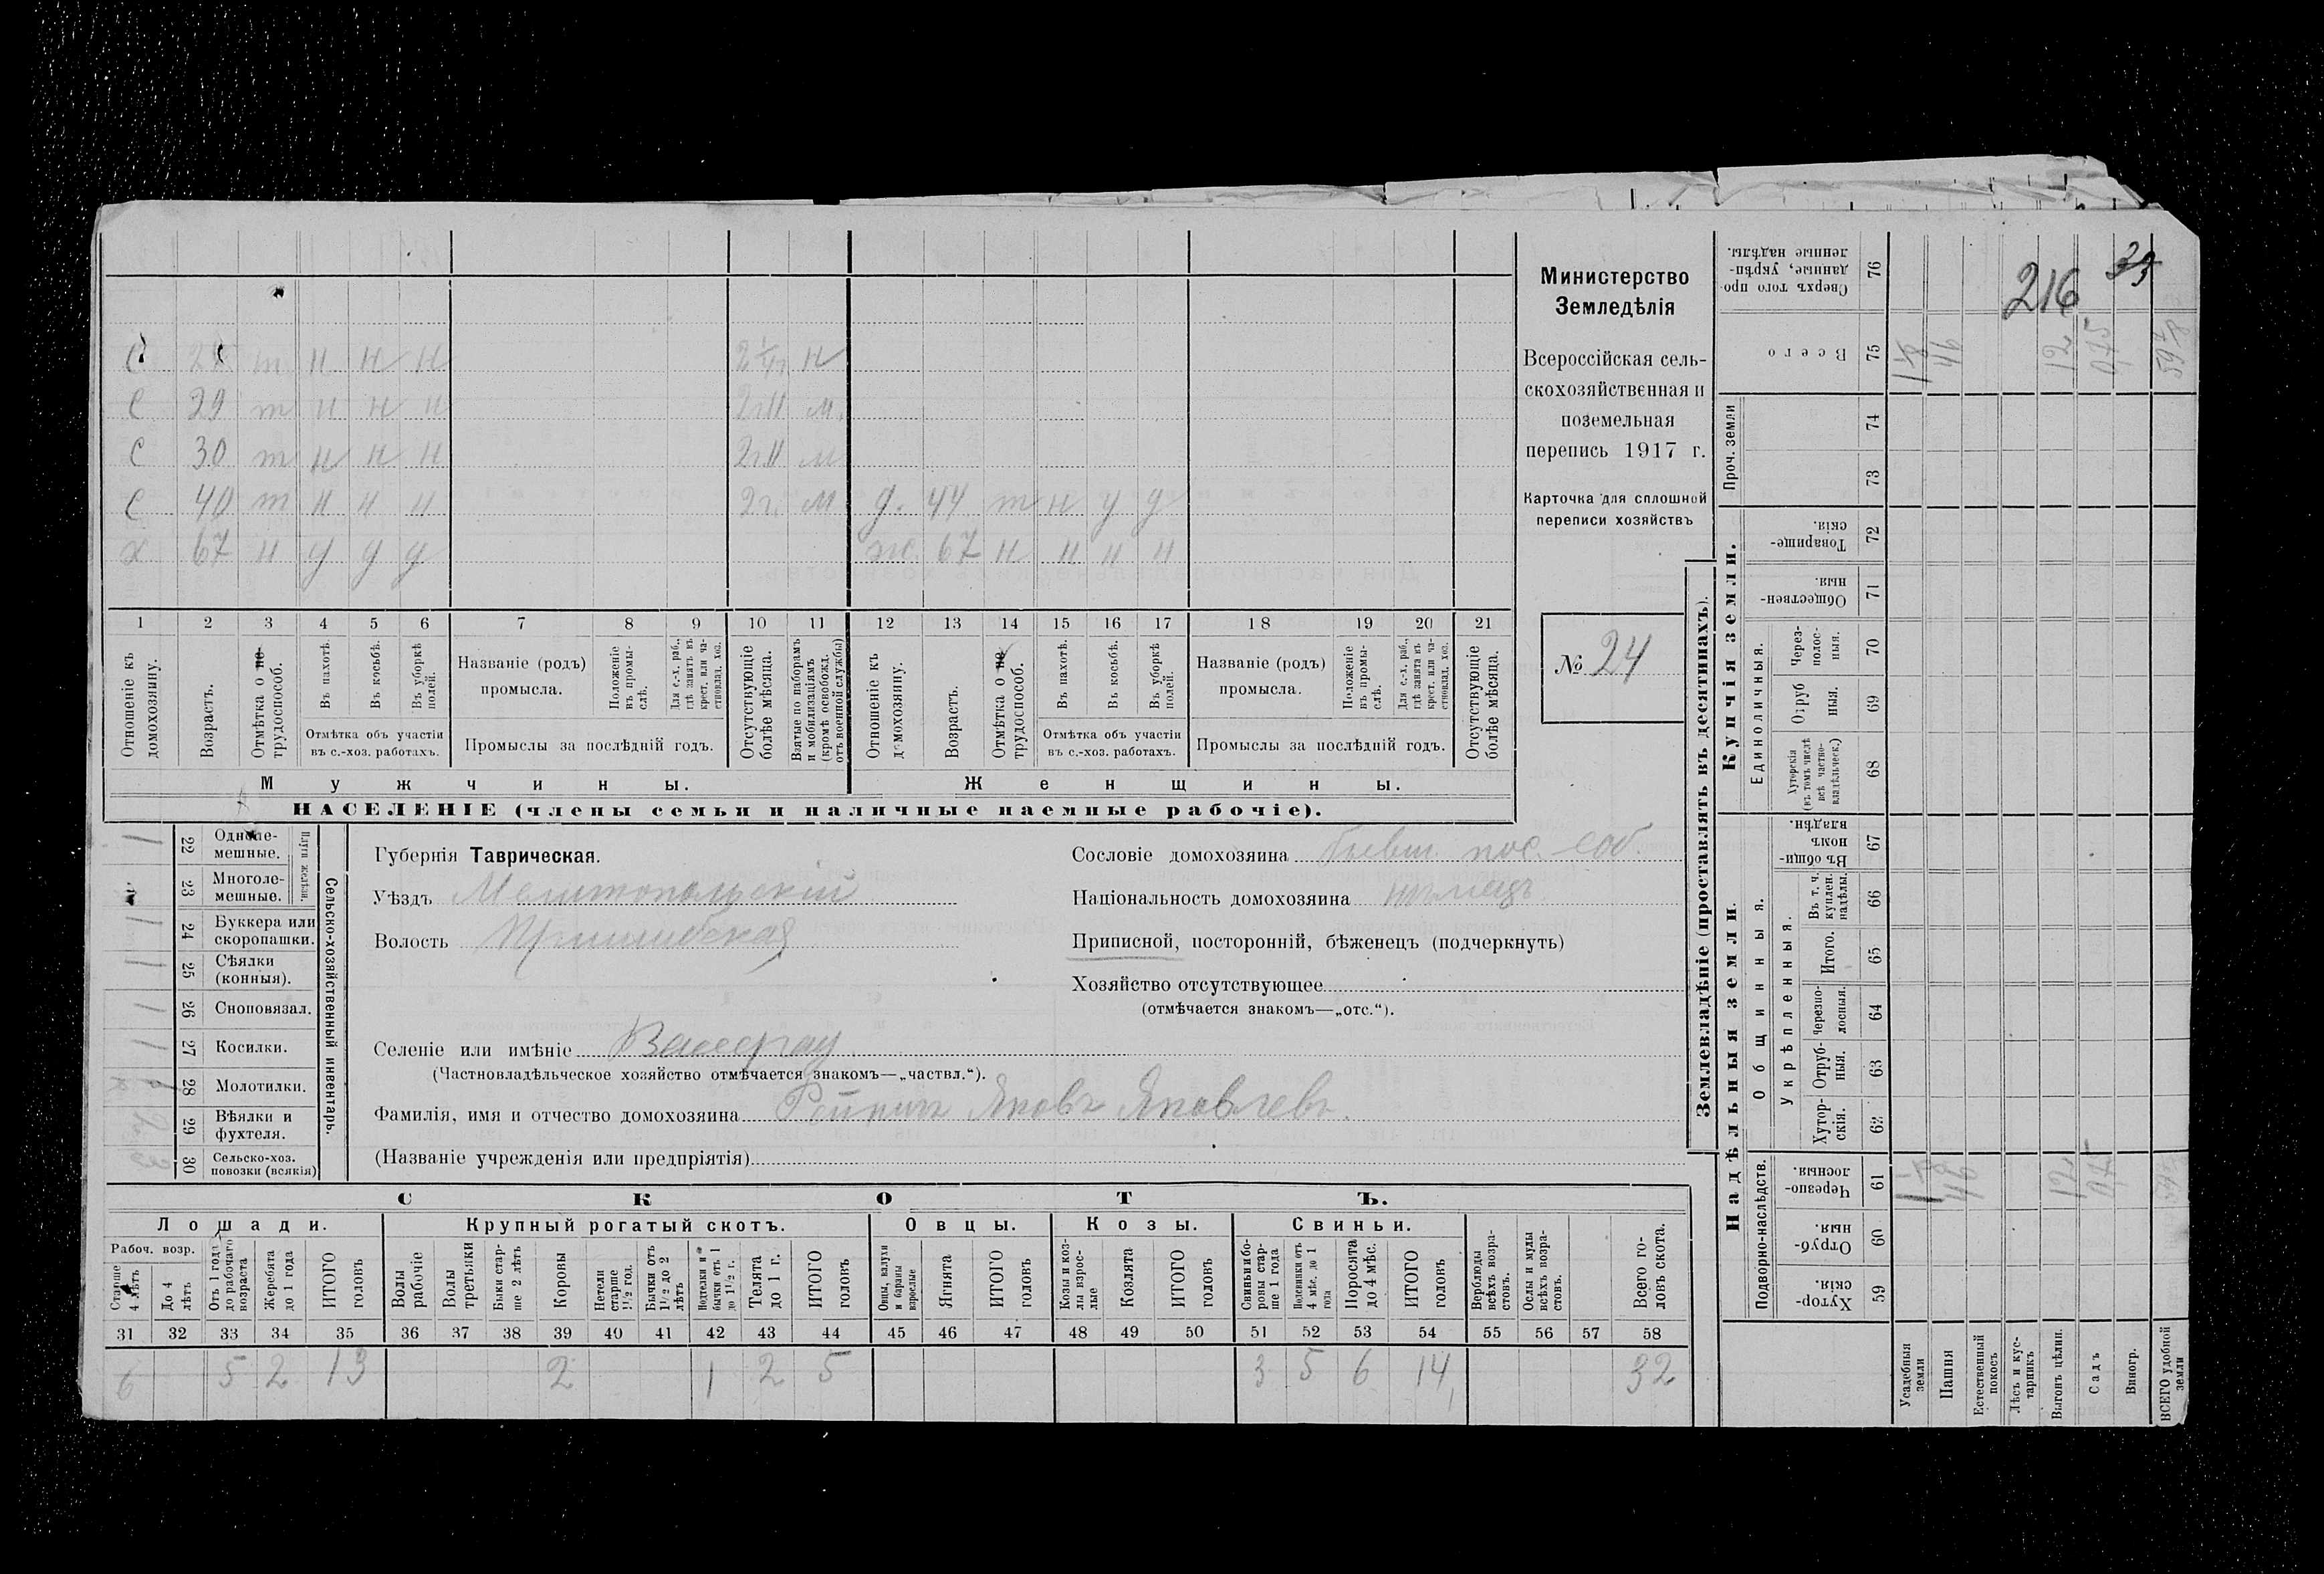 216
33
С 2 т н н н 2 г. н
С 29 т н н н 2 г. м
С 30 т н н н 2 г. м
С 40 т н н н 2 г. м д. 44 т н у д
х 67 н у у у ж. 67 н н н н
1 2 3 4 5 6 7 8 9 10 11 12 13 14 15 16 17 18 19 20 21
Отношеніе къ домохозяину.
Возрастъ.
Отмѣтка о не-трудоспособ.
Въ пахотѣ.
Въ косьбѣ.
Въ уборкѣ полей.
Отмѣтка объ участіи
въ с.-хоз. работахъ.
Названіе (родъ)
промысла.
Положеніе въ промы-слѣ.
Для с.-х. раб., гдѣ занятъ въ крест. или ча-стновлад. хоз.
Промыслы за послѣдній годъ.
Отсутствующіе болѣе мѣсяца.
Взятые по наборамъ и мобилизаціямъ (кромѣ освобожд. отъ военной службы)
Отношеніе къ домохозяину.
Возрастъ.
Отмѣтка о не трудоспособ.
Въ пахотѣ.
Въ косьбѣ.
Въ уборкѣ полей.
Отмѣтка объ участіи
въ с.-хоз. работахъ.
Названіе (родъ)
промысла.
Положеніе въ промы-слѣ.
Для с.-х. раб., гдѣ занята въ крест. или ча-стновлад. хоз.
Промыслы за послѣдній годъ.
Отсутствующіе болѣе мѣсяца.
Мужчины. Женщины.
НАСЕЛЕНІЕ (члены семьи и наличные наемные рабочіе).
Министерство
Земледѣлія
Всероссійская сель-
скохозяйственная и
поземельная
перепись 1917 г.
Карточка для сплошной
переписи хозяйствъ
№ 24
Сельско-хозяйственный инвентарь.
Плуги желѣзн.
1 22 Одноле-мешные.
23 Многоле-мешные.
1 24 Буккера или скоропашки.
1 25 Сѣялки (конныя).
1 26 Сноповязал.
1 27 Косилки.
28 Молотилки.
29 Вѣялки и фухтеля.
3 30 Сельско-хоз. повозки (всякія)
Губернія Таврическая.
Уѣздъ Мелитопольскій
Волость Пришибская
Селеніе или имѣніе Вассерау
(Частновладѣльческое хозяйство отмѣчается знакомъ—„частвл.“).
Фамилія, имя и отчество домохозяина Яковъ Яковлевъ
(Названіе учрежденія или предпріятія)
Сословіе домохозяина бывш. пос. соб.
Національность домохозяина нѣмецъ
Приписной, посторонній, бѣженецъ (подчеркнуть)
Хозяйство отсутствующее
(отмѣчается знакомъ—„отс.“).
СКОТЪ.
Лошади. Крупный рогатый скотъ. Овцы. Козы. Свиньи.
Рабоч. возр.
Старше 4 лѣтъ
До 4 лѣтъ
Отъ 1 года до рабочаго возраста
Жеребята до 1 года
ИТОГО головъ
Волы рабочіе
Волы третьяки
Быки стар-ше 2 лѣтъ
Коровы
Нетели старше 1½ год.
Бычки отъ 1½ до 2 лѣтъ
Подтелки и бычки отъ 1 до 1½ г.
Телята до 1 г.
ИТОГО головъ
Овцы, валухи и бараны взрослые
Ягнята
ИТОГО головъ
Козы и коз-лы взрос-лые
Козлята
ИТОГО головъ
Свиньи и бо-ровы стар-ше 1 года
Подсвинки отъ 4 мѣс. до 1 года
Поросята до 4 мѣс.
ИТОГО головъ
Верблюды всѣхъ возра-стовъ.
Ослы и мулы всѣхъ возра-стовъ.
Всего го-ловъ скота.
31 32 33 34 35 36 37 38 39 40 41 42 43 44 45 46 47 48 49 50 51 52 53 54 55 56 57 58
6 5 2 13 2 1 2 5 3 5 6 14 32
Землевладѣніе (проставлять въ десятинахъ).
Надѣльныя земли. Купчія земли. Проч. земли
Подворно-наслѣдств.
Общинныя.
Укрѣпленныя.
Единоличныя.
Хутор-скія. 59
Отруб-ныя. 60
Черезпо-лосныя. 61
Хутор-скія. 62
Отруб-ныя. 63
Черезпо-лосныя. 64
Итого. 65
Въ т. ч. куплен. надѣлы. 66
Въ общи-номъ владѣн. 67
Хуторскія (въ томъ числѣ всѣ частно-владѣльческ.) 68
Отруб ныя. 69
Через-полос-ныя. 70
Обществен-ныя. 71
Товарище-скія. 72
73
74
Всего 75
Сверхъ того про-данные, укрѣп-ленные надѣлы. 76
Усадебныя земли
Пашня 46 46
Естественный покосъ
Лѣсъ и кус-тарникъ
Выгонъ цѣлин. 12 12
Садъ 0,75
Виногр.
ВСЕГО удобной земли 59⅞